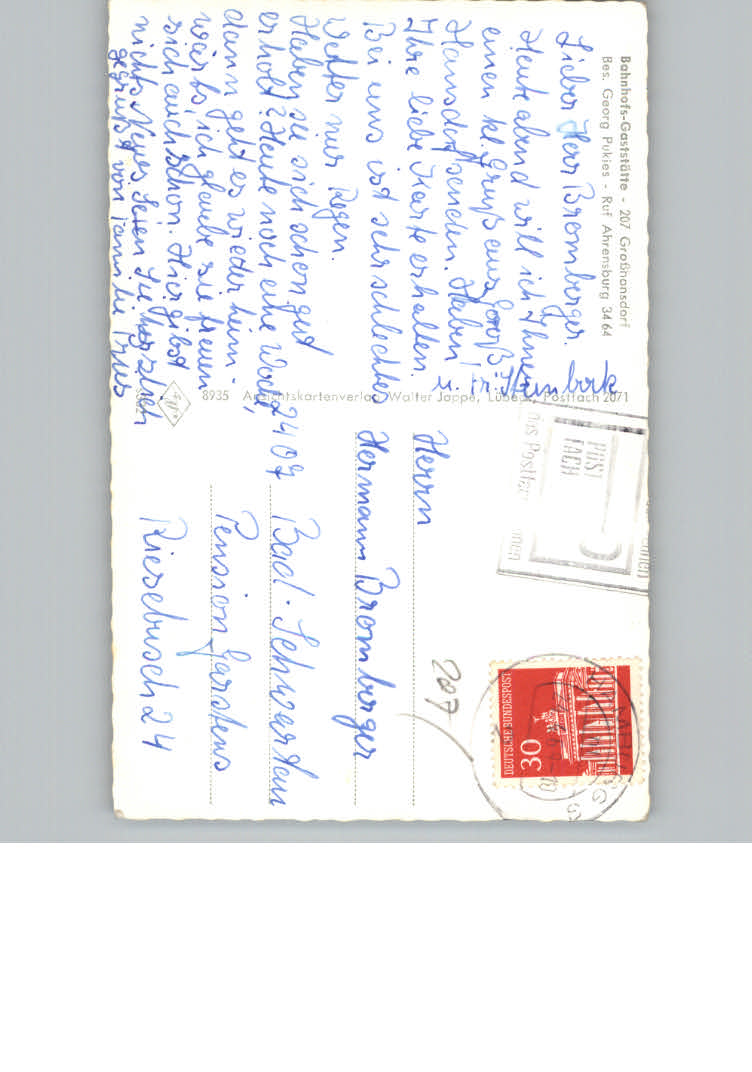 Bahnhofs-Gaststätte - 207 Großhansdorf
Bes. Georg Pukies - Ruf Ahrensburg 34 64
Lieber Herr Bromberger.
Heute abend will ich Ihnen
einen kl. Gruß aus Groß
Hansdorf senden. Haben
Ihre liebe Karte erhalten.
Bei uns ist sehr schlechtes
Wetter nur Regen.
Haben sie sich schon gut
erholt? Heute noch eine Woche,
dann geht es wieder heim-
wärts ich glaube sie freuen
sich auch schon. Hier gibst
nichts Neues Seien Sie herzlich
gegrüßt von Familie
u. Fr. Steinbock
8935 Ansichtskartenverlag Walter Jappe, Lübeck, Postfach 2071
POST
FACH
DEUTSCHE BUNDESPOST
30
2007
Herrn
Hermann Bromberger
2407 Bad-Schwartau
Pension Carstens
Riesebusch 24